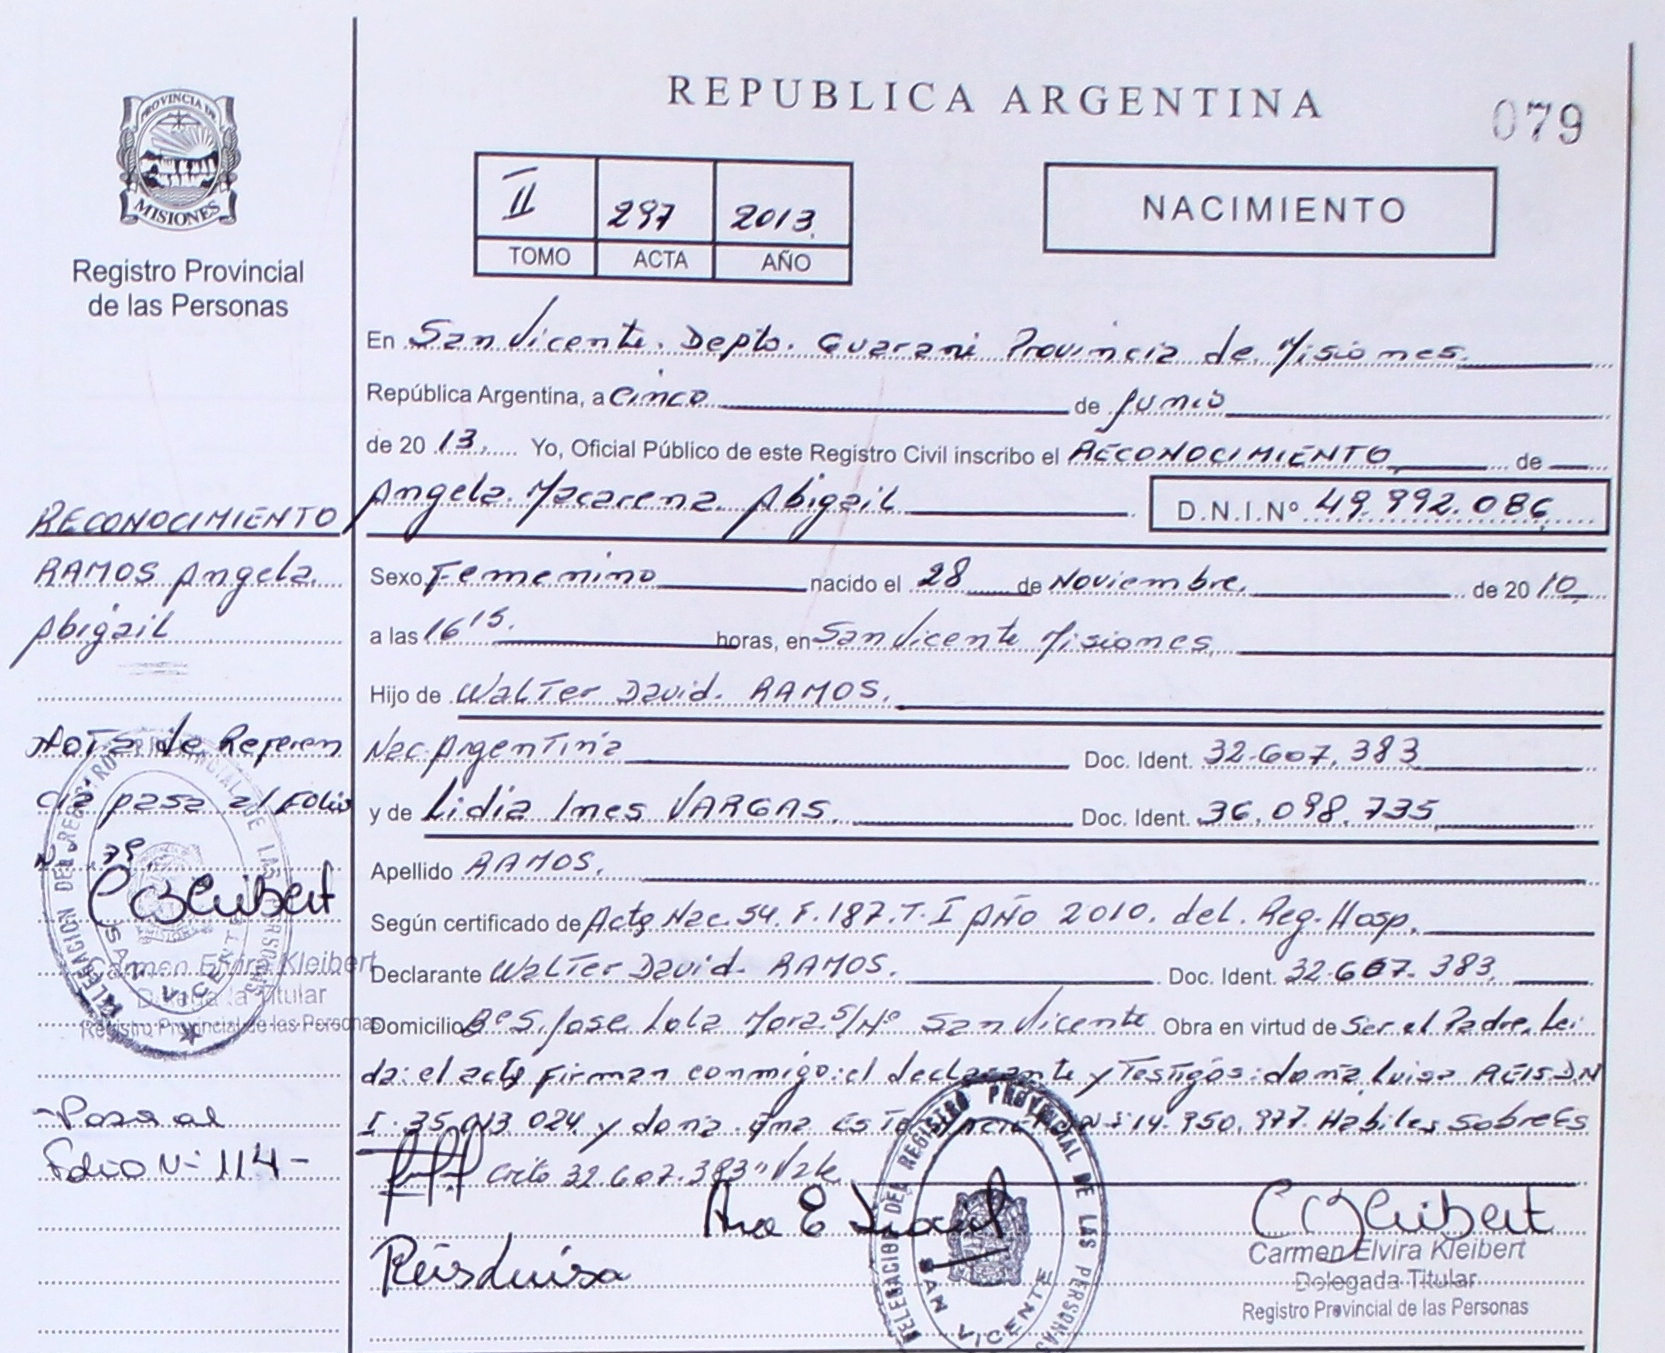 REPUBLICA ARGENTINA
079
PROVINCIA DE
MISIONES
Registro Provincial
de las Personas
II 297 2013
TOMO ACTA AÑO
NACIMIENTO
En San Vicente. Depto. Guarani Provincia de Misiones.
República Argentina, a Cinco de Junio
de 2013. Yo, Oficial Público de este Registro Civil inscribo el RECONOCIMIENTO de
Angela Macarena Abigail D.N.I.Nº 49.992.086
Sexo Femenino nacido el 28 de Noviembre. de 2010
a las 16 15. horas, en San Vicente Misiones
Hijo de Walter David. RAMOS.
Nac. Argentina Doc. Ident. 32.607.383
y de Lidia Ines VARGAS. Doc. Ident. 36.098.735
Apellido RAMOS.
Según certificado de Acta Nac. 54. F. 187. T. I AÑO 2010. del. Reg. Hosp.
Declarante Walter David. RAMOS. Doc. Ident. 32.607.383
Domicilio Bº S. Jose Lola Mora S/Nº San Vicente Obra en virtud de Ser el Padre. Lei
da: el acta firman conmigo: el declarante y Testigos: doña Luisa REIS DN
I. 35.013.024 y doña Ana 14.950.977. Habiles Sobre Es
crito 32.607.383 "Vale
Reis Luisa
Ana E
Carmen Elvira Kleibert
Delegada Titular
Registro Provincial de las Personas
DELEGACION DEL REGISTRO PROVINCIAL DE LAS PERSONAS
SAN VICENTE
RECONOCIMIENTO
RAMOS Angela
Abigail
Nota de Referen
cia pasa al Folio
Nº 79.
DELEGACION DEL REGISTRO PROVINCIAL DE LAS PERSONAS
SAN VICENTE
Carmen Elvira Kleibert
Delegada Titular
Registro Provincial de las Personas
-Pasa al
Folio Nº 114-